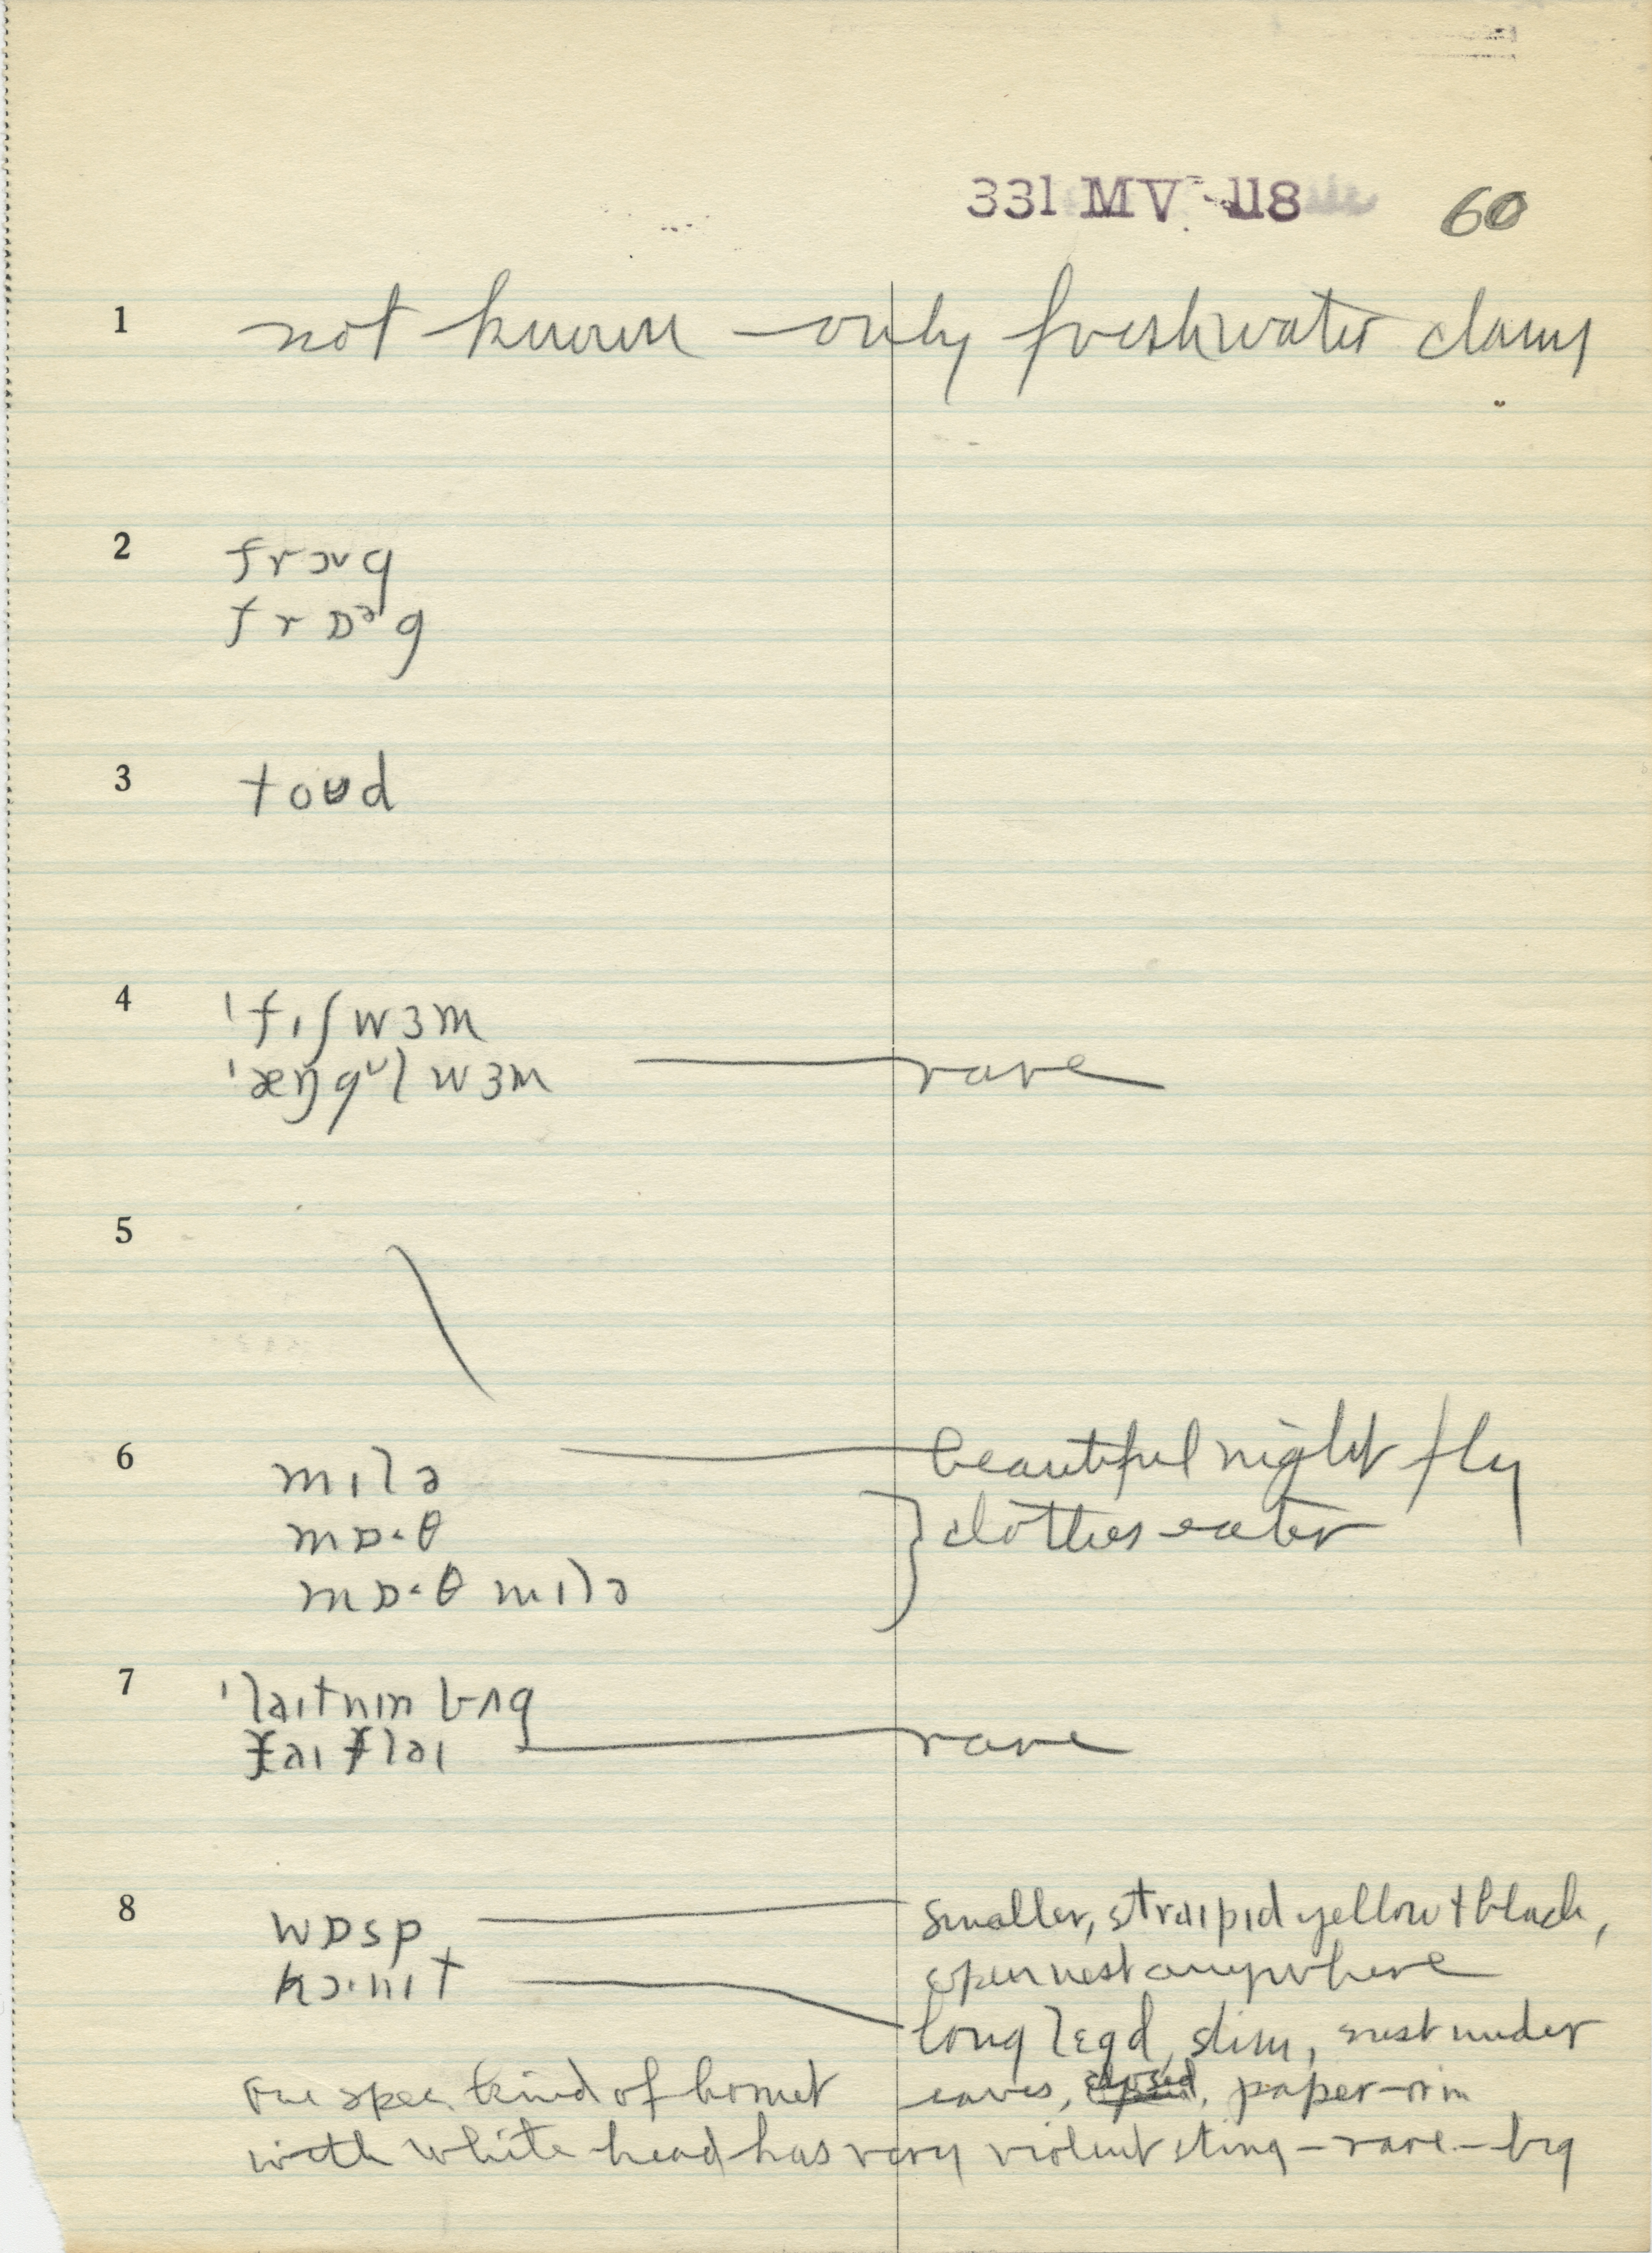 331 MV 118 60
1 not known – only freshwater clams
2 frɔvg
frɒᵊg
3 toʊd
4 ˈfɪʃwɜm
ˈæŋgᵘlwɜm — rare
5
6 mɪlə — beautiful night fly
mɒ·θ } clothes eater
mɒ·θ mɪlə
7 ˈlaɪtnɪn bʌg
faɪ flaɪ — rare
8 wɒsp — smaller, straɪpɪd yellow + black,
open nest anywhere
hɔ·nɪt — long lɛgd, slim, nest under
eaves, closed, paper-rim
one spec. kind of hornet
with white head has very violent sting – rare – big